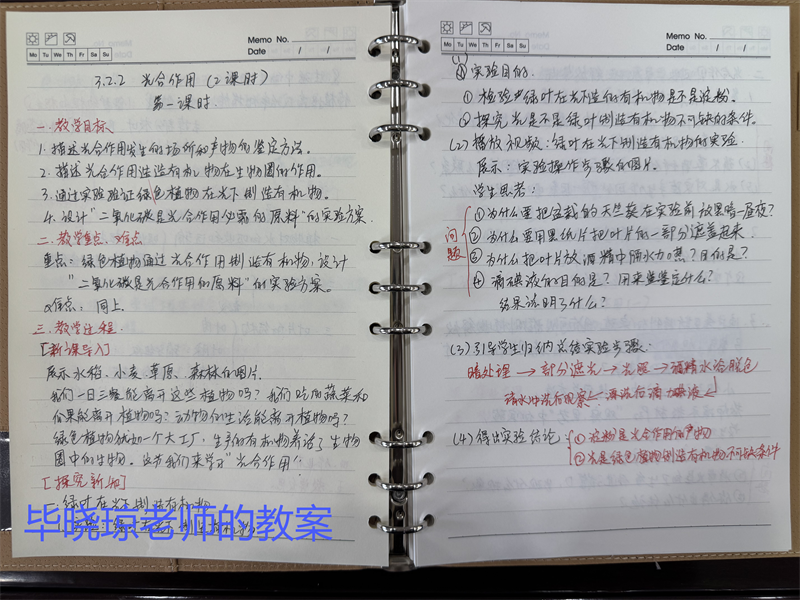 Memo No.
Mo Tu We Th Fr Sa Su
Date / /
3.2.2 光合作用（2课时）
第一课时
一. 教学目标
1. 描述光合作用发生的场所和产物的鉴定方法。
2. 描述光合作用制造有机物在生物圈的作用。
3. 通过实验验证绿色植物在光下制造有机物。
4. 设计"二氧化碳是光合作用必需的原料"的实验方案.
二. 教学重点、难点
重点：绿色植物通过光合作用制造有机物；设计
"二氧化碳是光合作用的原料"的实验方案。
难点：同上.
三. 教学过程.
[新课导入]
展示水稻、小麦、草原、森林的图片
我们一日三餐能离开这些植物吗？我们吃的蔬菜和
水果能离开植物吗？动物的生活能离开植物吗？
绿色植物就如一个大工厂，生产的有机物养活了生物
圈中的生物。这节我们来学习"光合作用"
[探究新知]
一. 绿叶在光下制造有机物
毕晓琼老师的教案
Memo No.
Mo Tu We Th Fr Sa Su
Date / /
实验目的.
① 检验绿叶在光下制造的有机物是不是淀粉。
② 探究光是不是绿叶制造有机物不可缺的条件。
(2) 播放视频：绿叶在光下制造有机物的实验.
展示：实验操作步骤的图片.
学生思考：
问题
① 为什么要把盆栽的天竺葵在实验前放黑暗一昼夜？
② 为什么要用黑纸片把叶片的一部分遮盖起来
③ 为什么把叶片放酒精中隔水加热？目的是？
④ 滴碘液的目的是？用来鉴定什么？
结果说明了什么？
(3) 引导学生归纳总结实验步骤：
暗处理→部分遮光→光照→酒精水浴脱色
清水冲洗后观察←漂洗后滴碘液←
(4) 得出实验结论
① 淀粉是光合作用的产物
② 光是绿色植物制造有机物不可缺条件